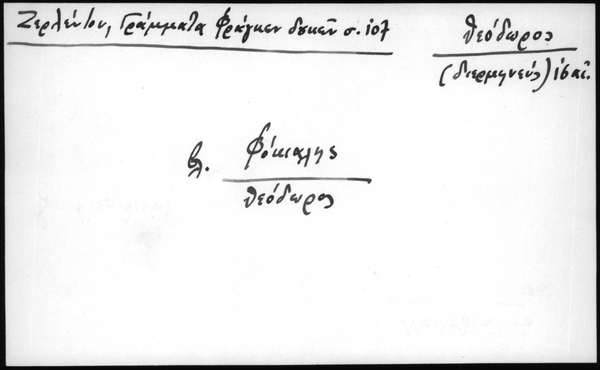 Ζερλέντου, Γράμματα Φράγκων δουκῶν σ. 107
Θεόδωρος
(διερμηνεύς) 16 αἰ.
βλ. Φόκιαλης
Θεόδωρος